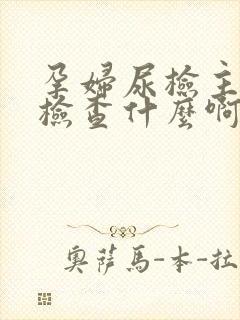 孕婦尿檢主
檢查什麼啊
奧薩馬-本-拉